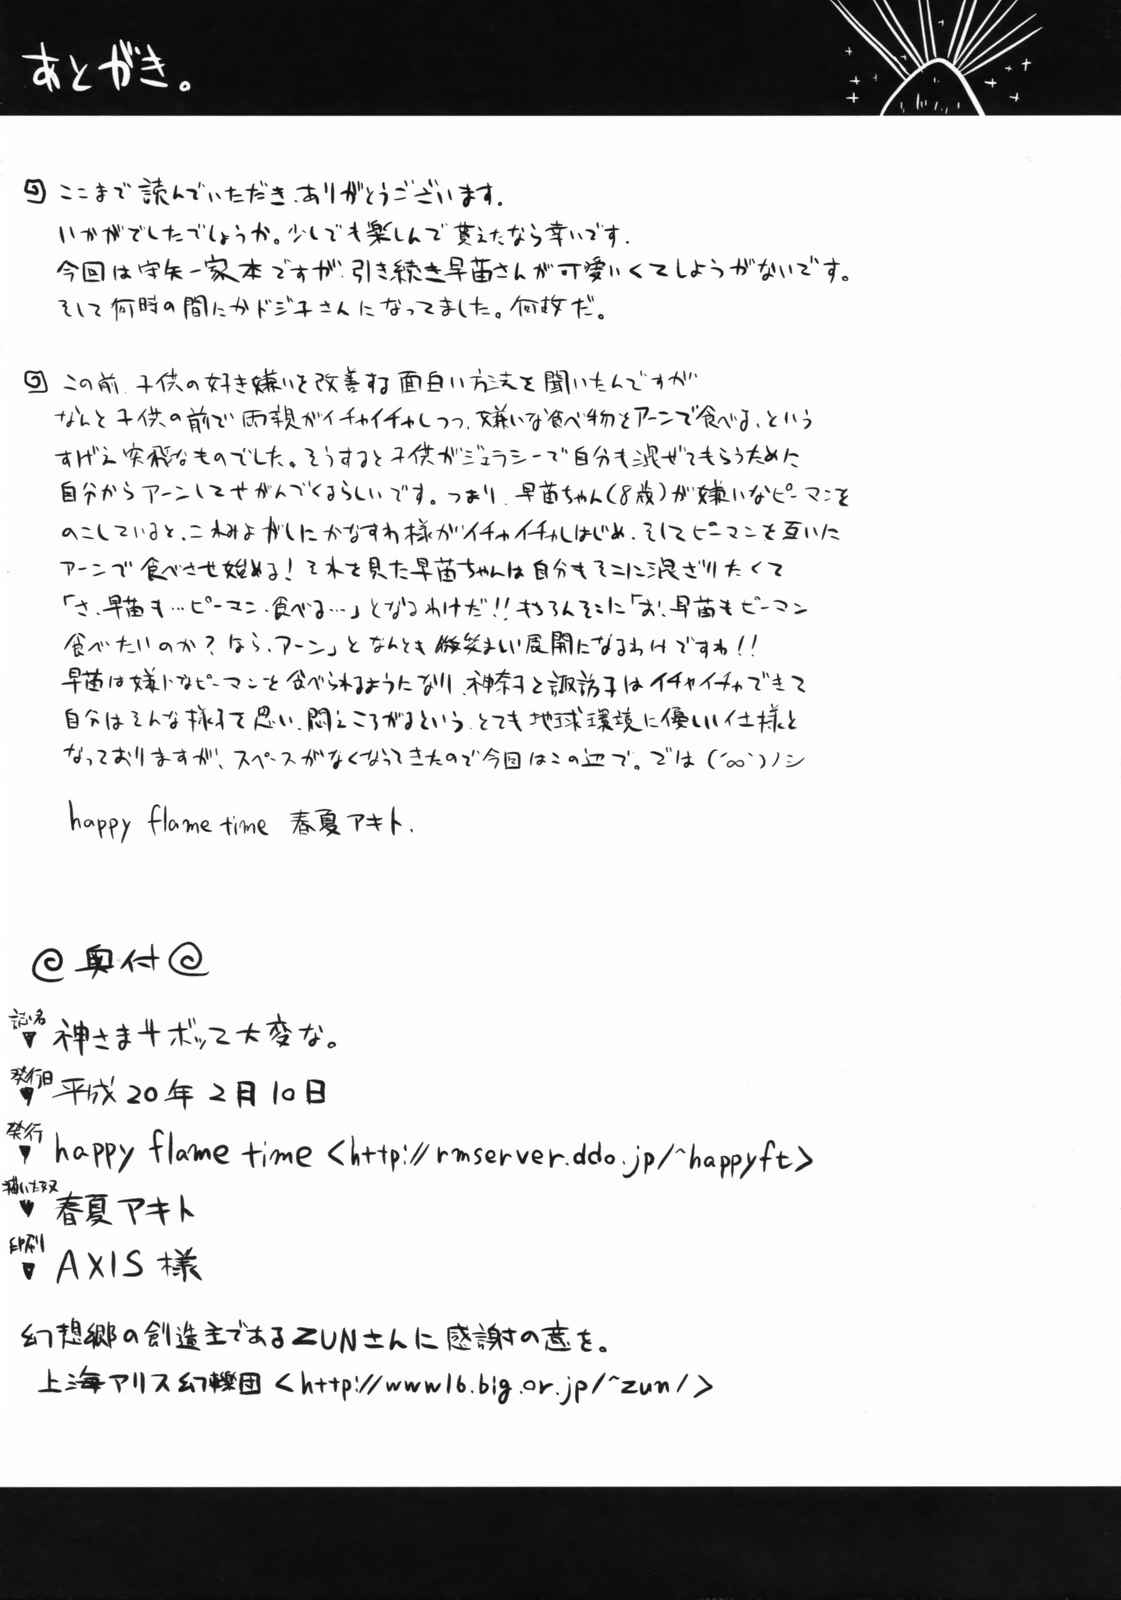 あとがき。
ここまで読んでいただき、ありがとうございます。
いかがでしたでしょうか。少しでも楽しんで貰えたなら幸いです。
今回は守矢一家本ですが、引き続き早苗さんが可愛いくてしようがないです。
そして何時の間にかドジ子さんになってました。何故だ。
この前、子供の好き嫌いを改善する面白い方法を聞いたんですが
なんと子供の前で両親がイチャイチャしつつ、嫌いな食べ物をアーンで食べる、という
すげえ突飛なものでした。そうすると子供がジェラシーで自分も混ぜてもらうために
自分からアーンしてせがんでくるらしいです。つまり、早苗ちゃん(8歳)が嫌いなピーマンを
のこしていると、これみよがしにかなすわ様がイチャイチャしはじめ、そしてピーマンを互いに
アーンで食べさせ始める!それを見た早苗ちゃんは自分もそこに混ざりたくて
「さ、早苗も…ピーマン、食べる…」となるわけだ!!もちろんそこに「お、早苗もピーマン
食べたいのか?なら、アーン」となんとも微笑ましい展開になるわけですわ!!
早苗は嫌いなピーマンを食べられるようになり、神奈子と諏訪子はイチャイチャできて
自分はそんな様子を思い、悶えころがるという、とても地球環境に優しい仕様と
なっておりますが、スペースがなくなってきたので今回はこの辺で。では(´∞`)ノシ
happy flame time 春夏アキト.
@奥付@
誌名
▼神さまサボって大変な。
発行日
▼平成20年2月10日
発行
▼happy flame time <http://rmserver.ddo.jp/~happyft>
描いた奴
▼春夏アキト
印刷
▼AXIS様
幻想郷の創造主であるZUNさんに感謝の意を。
上海アリス幻樂団<http://www16.big.or.jp/~zun/>